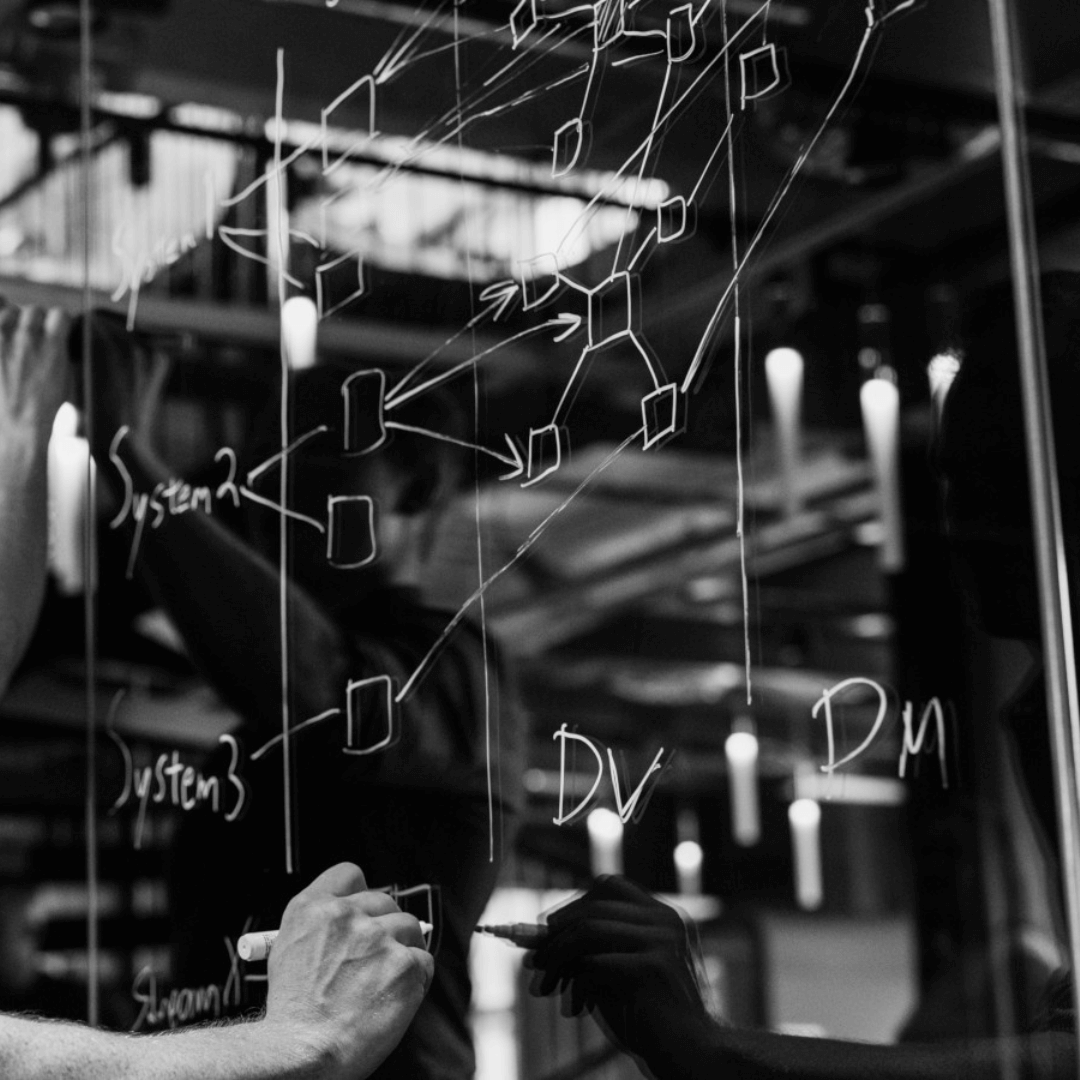 System 1
System 2
System 3
DV
DM
Stream